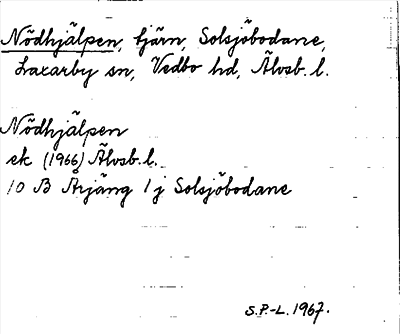 Nödhjälpen, tjärn, Solsjöbodane,
Laxarby sn, Vedbo hd, Älvsb. l.
Nödhjälpen
ek (1966) Älvsb. l.
10 B Årjäng 1 j Solsjöbodane
S.P.-L. 1967.